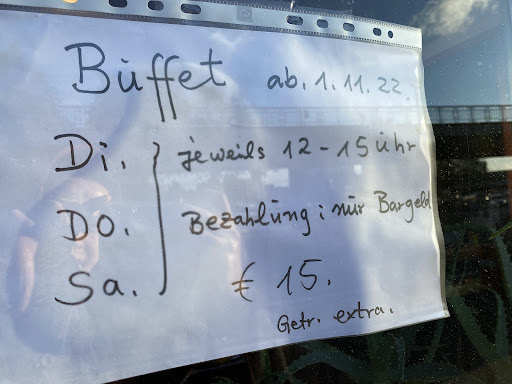 Büffet ab. 1.11.22.
Di. jeweils 12-15 Uhr
Do. Bezahlung: nur Bargeld
Sa. € 15.
Getr. extra.